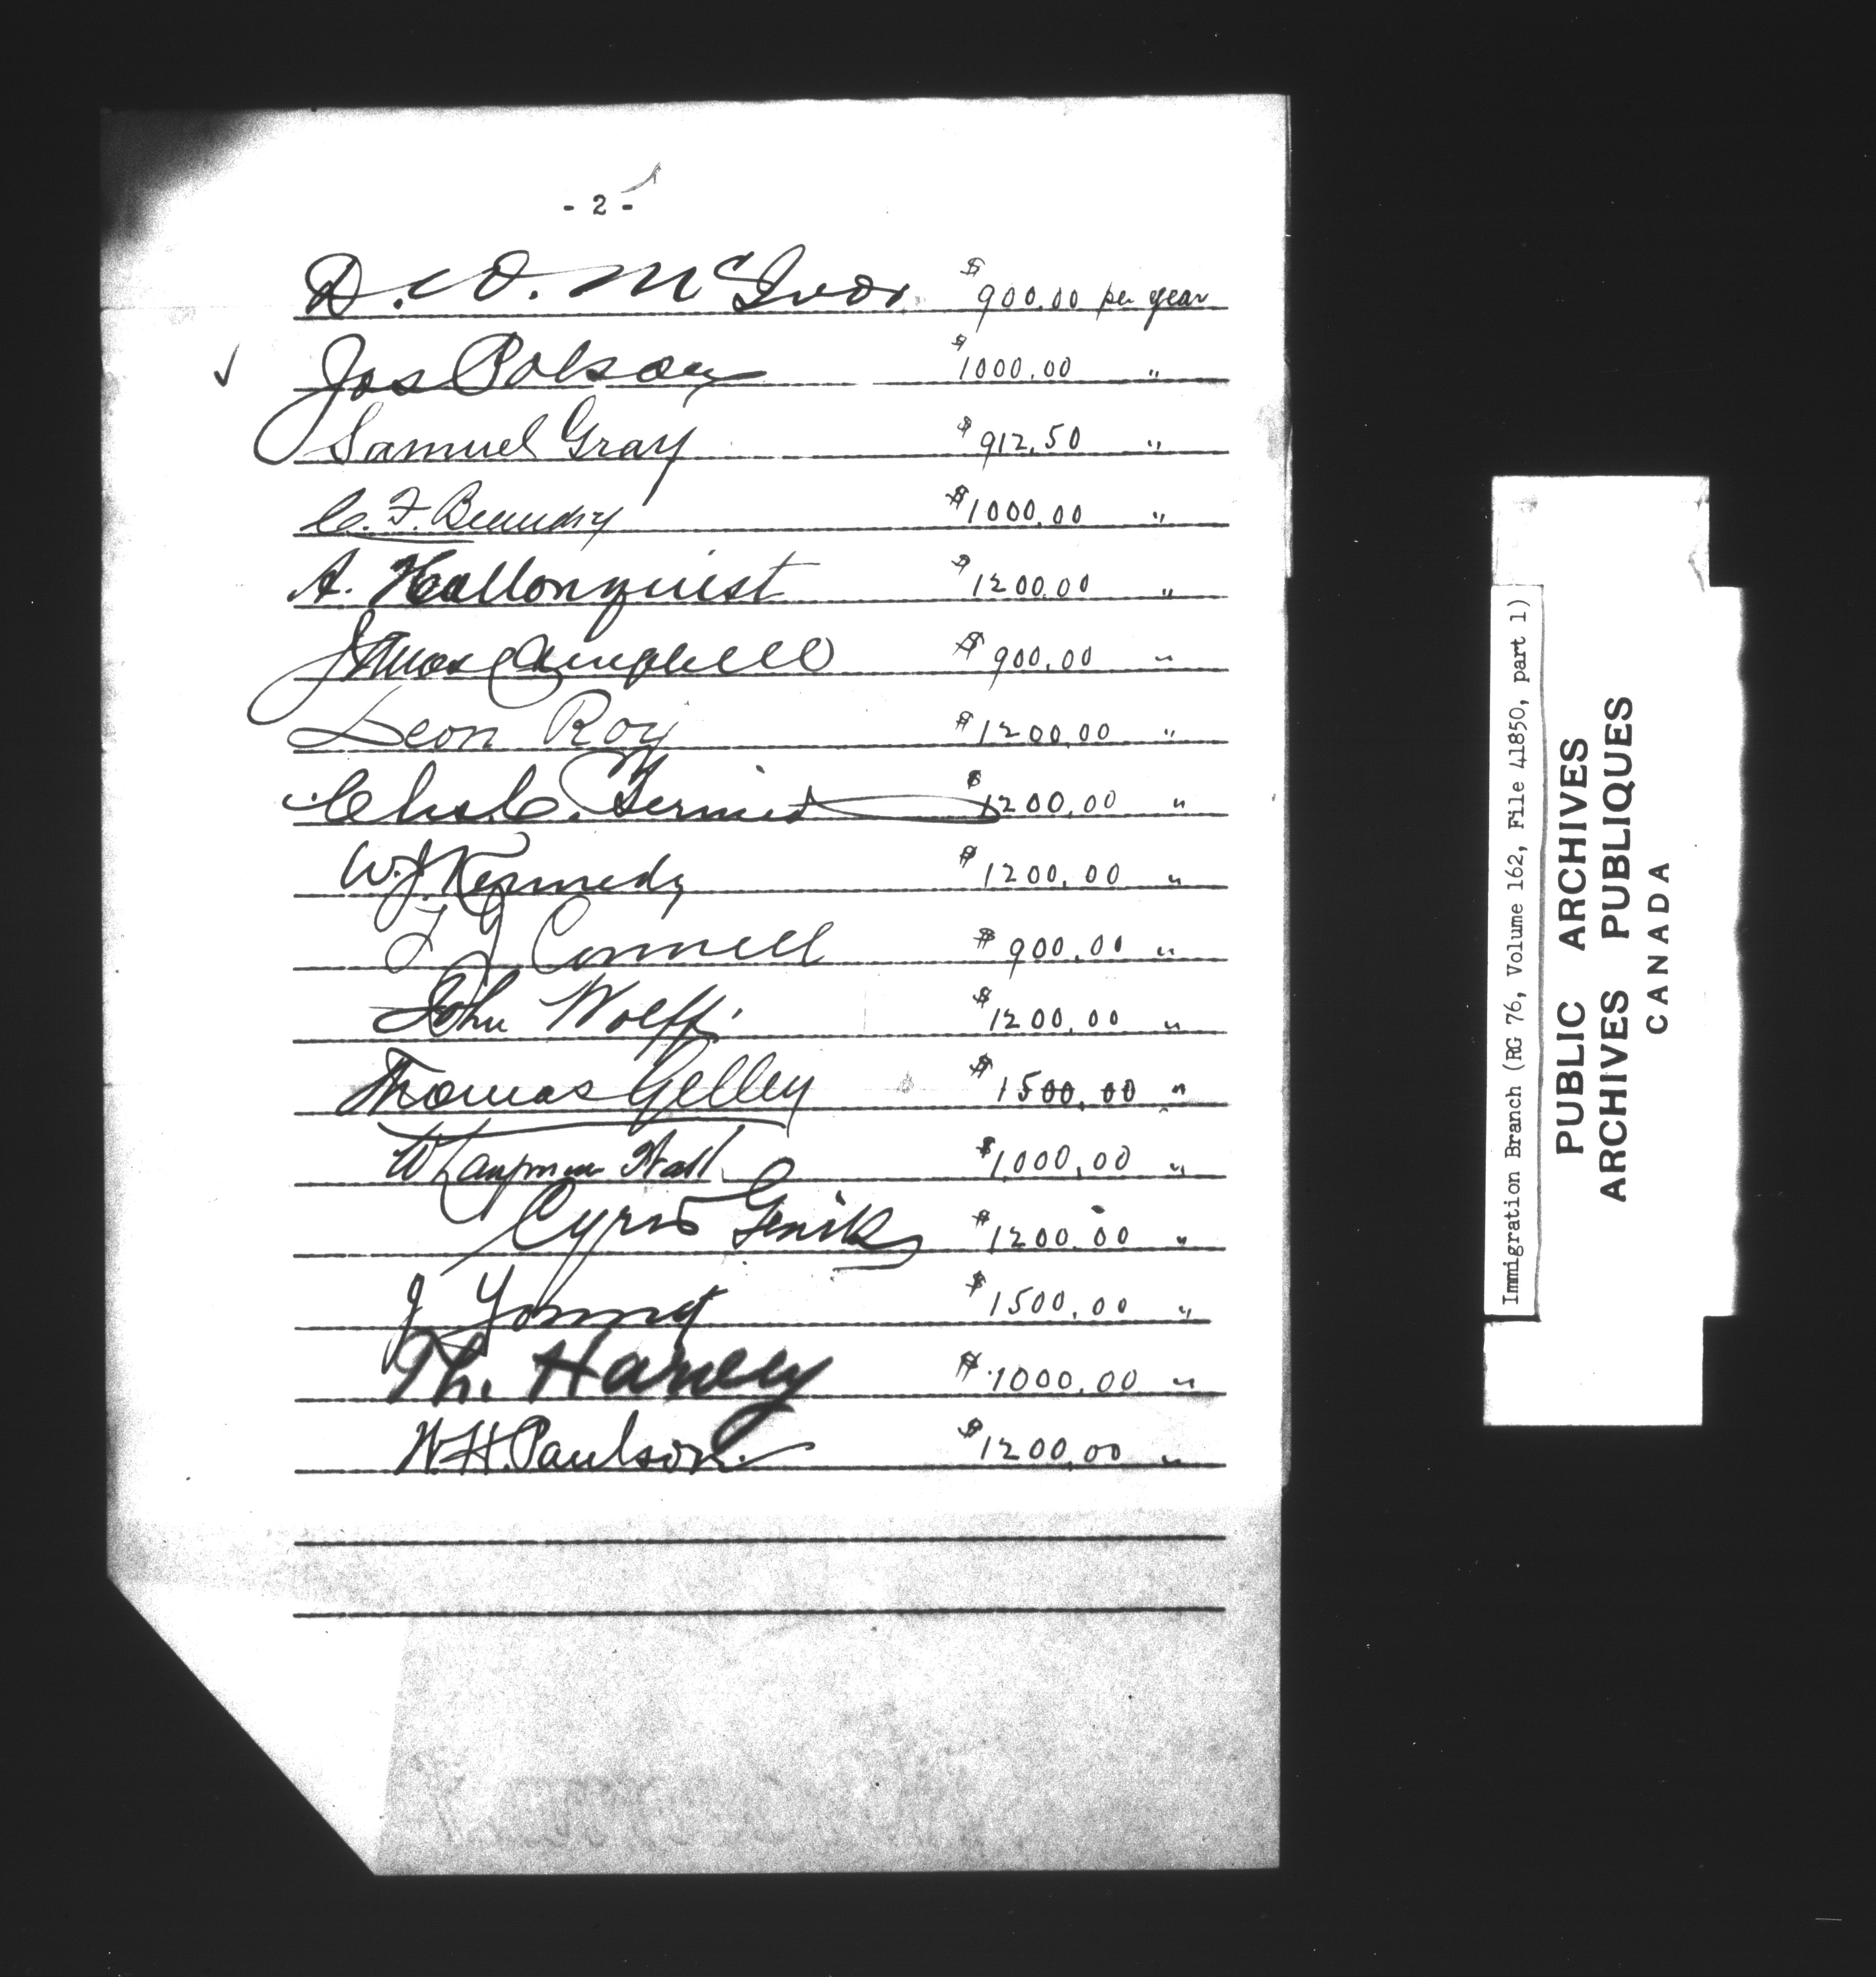 - 2 -
D. D. McIvor $ 900.00 per year
Jos Polson $ 1000.00 "
Samuel Gray $ 912.50 "
C. F. Beaudry $ 1000.00 "
A. Hallonquist $ 1200.00 "
Campbell $ 900.00 "
Leon Roy $ 1200.00 "
Chas C. $ 1200.00 "
W. J. Kennedy $ 1200.00 "
T J Connell $ 900.00 "
John Wolff $ 1200.00 "
Thomas Gelley $ 1500.00 "
Hall $ 1000.00 "
Cyril Genik $ 1200.00 "
J Young $ 1500.00 "
Th. Harvey $ 1000.00 "
W. H. Paulson $ 1200.00 "
Immigration Branch (RG 76, Volume 162, File 41850, part 1)
PUBLIC ARCHIVES
ARCHIVES PUBLIQUES
CANADA